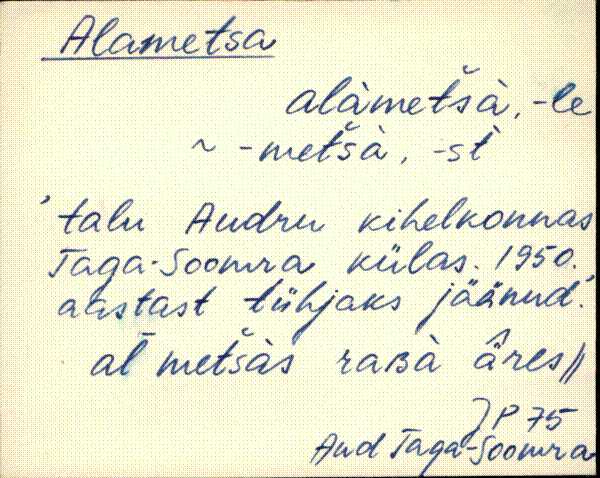 Alametsa
alàmet̆sà, -le
~ -met̆sà, -st
'talu Audru kihelkonnas
Taga-Soomra külas. 1950.
aastast tühjaks jäänud.'
al̄ met̆sàs raʙà ä̂res //
JP 75
Aud Taga-Soomra